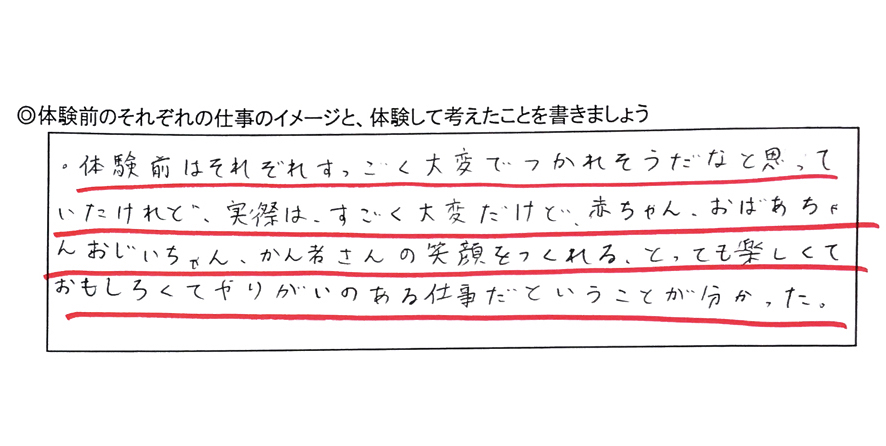 ◎体験前のそれぞれの仕事のイメージと、体験して考えたことを書きましょう
・体験前はそれぞれすっごく大変でつかれそうだなと思って
いたけれど、実際は、すごく大変だけど、赤ちゃん、おばあちゃ
んおじいちゃん、かん者さんの笑顔をつくれる、とっても楽しくて
おもしろくてやりがいのある仕事だということが分かった。